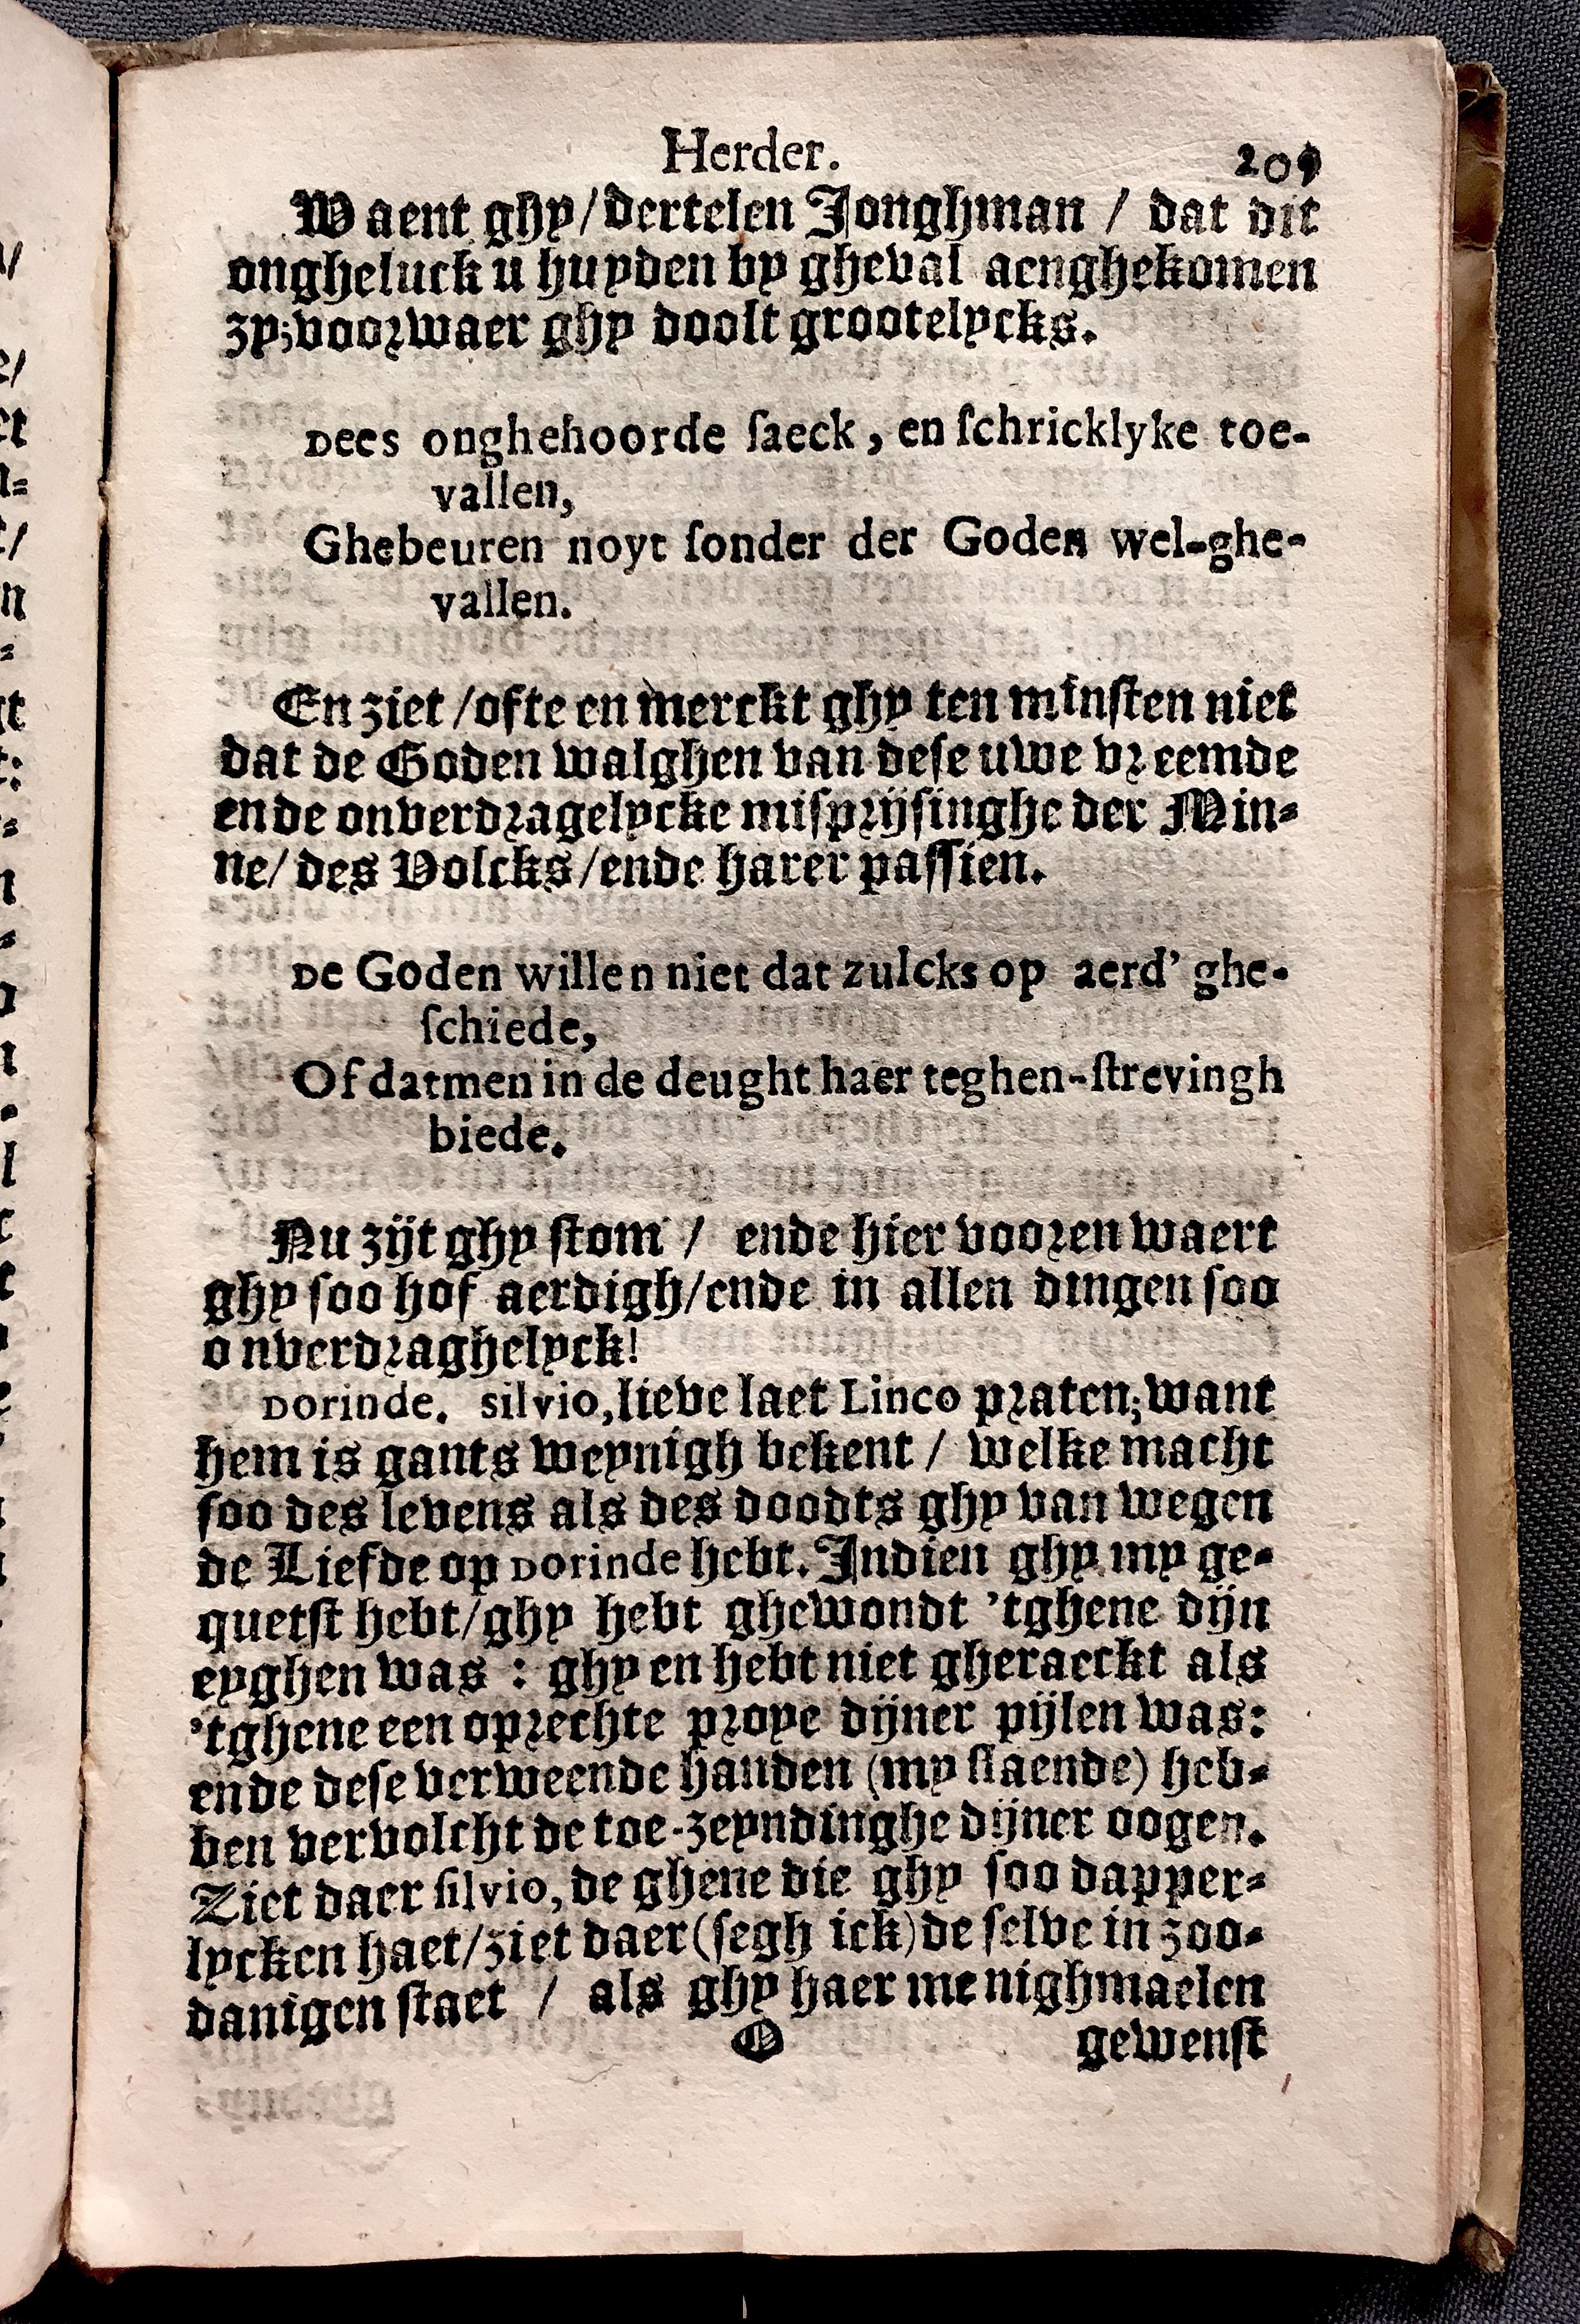 Herder. 209
Waent ghy/dertelen Jonghman / dat dit
ongheluck u huyden by gheval aenghekomen
zy;voorwaer ghy doolt grootelycks.
Dees onghehoorde ſaeck, en ſchricklyke toe-
vallen,
Ghebeuren noyt ſonder der Goden wel-ghe-
vallen.
En ziet /ofte en merckt ghy ten minſten niet
dat de Goden walghen van deſe uwe vreemde
ende onverdragelycke miſprijſinghe der Min-
ne/ des Volcks /ende harer paſſien.
De Goden willen niet dat zulcks op aerd' ghe-
ſchiede,
Of datmen in de deught haer teghen-ſtrevingh
biede.
Nu zijt ghy ſtom / ende hier vooren waert
ghy ſoo hof aerdigh/ende in allen dingen ſoo
onverdraghelyck!
Dorinde. Silvio, lieve laet Linco praten; want
hem is gants weynigh bekent / welke macht
ſoo des levens als des doodts ghy van wegen
de Liefde op Dorinde hebt. Indien ghy my ge-
quetſt hebt/ghy hebt ghewondt 'tghene dijn
eyghen was : ghy en hebt niet gheraeckt als
'tghene een oprechte proye dijner pijlen was:
ende deſe verweende handen (my ſlaende) heb-
ben vervolcht de toe-zeyndinghe dijner oogen.
Ziet daer ſilvio, de ghene die ghy ſoo dapper-
lycken haet/ziet daer (ſegh ick) de ſelve in zoo-
danigen ſtaet / als ghy haer menighmaelen
O gewenſt